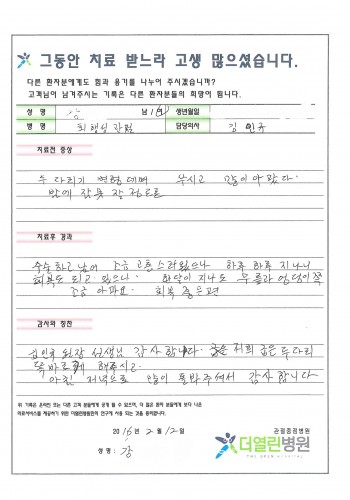 그동안 치료 받느라 고생 많으셨습니다.
다른 환자분에게도 힘과 용기를 나누어 주시겠습니까?
고객님이 남겨주시는 기록은 다른 환자분들의 희망이 됩니다.
성 명 남 / 여 생년월일
병 명 퇴행성관절 담당의사 김인규
치료전 증상
두 다리가 변형 되며 무시고 많이 아팠다.
밤에 잠못 잘 정도로
치료후 경과
수술 하고 남어 조금 고른스러웠으나 하루 하루 지나니
회복도 되고 있으나 한달이 지나도 무릎과 엉덩이쪽
조금 아파요. 회복 중은편
감사와 칭찬
김인규 원장 선생님 감사 합니다. 저희 굽은 두다리
똑바르게 해주시고.
아침 저녁으로 많이 돌봐주셔서 감사 합니다
위 기록은 온라인 또는 다른 고객 분들에게 공개 될 수 있으며, 더 많은 환자 분들에게 보다 나은
의료서비스를 제공하기 위한 더열린병원의 연구에 사용 되는 것을 동의합니다.
2016년 2월 12일
성 명: 강
관절중점병원
더열린병원
THE OPEN HOSPITAL